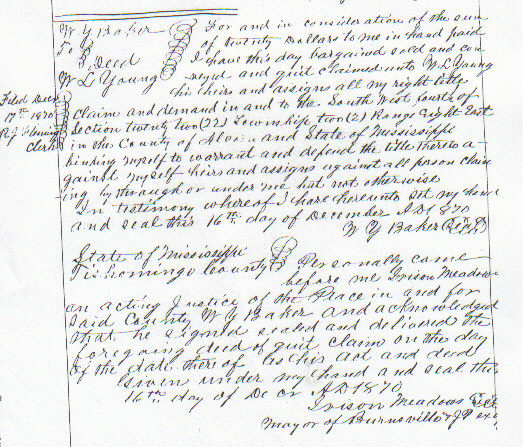 W Y Baker For and in consideration of the sum
To of twenty Dollars to me in hand paid
Deed I have this day bargained sold and con
W L Young veyed and quit claimed unto W L Young
his heirs and assigns all my right title
Filed Decr claim and demand in and to the South West fourth of
17th 1870 Section twenty two (22) Township two (2) Range Eight East
in the County of and State of Mississippi
Clerk binding myself to warrant and defend the title thereto a-
gainst myself heirs and assigns against all person claim
ing by through or under me but not otherwise
In testimony whereof I have hereunto set my hand
and seal this 16th day of December AD 1870
W Y Baker Seal
State of Mississippi
Tishomingo County Personally came
before me Irison Meadows
an acting Justice of the Peace in and for
Said County W Y Baker and acknowledged
that he signed sealed and delivered the
foregoing deed of quit claim on the day
of the date thereof as his act and deed
Given under my hand and seal this
16th day of Decr AD 1870
Irison Meadows Seal
Mayor of Burnsville & JP exo